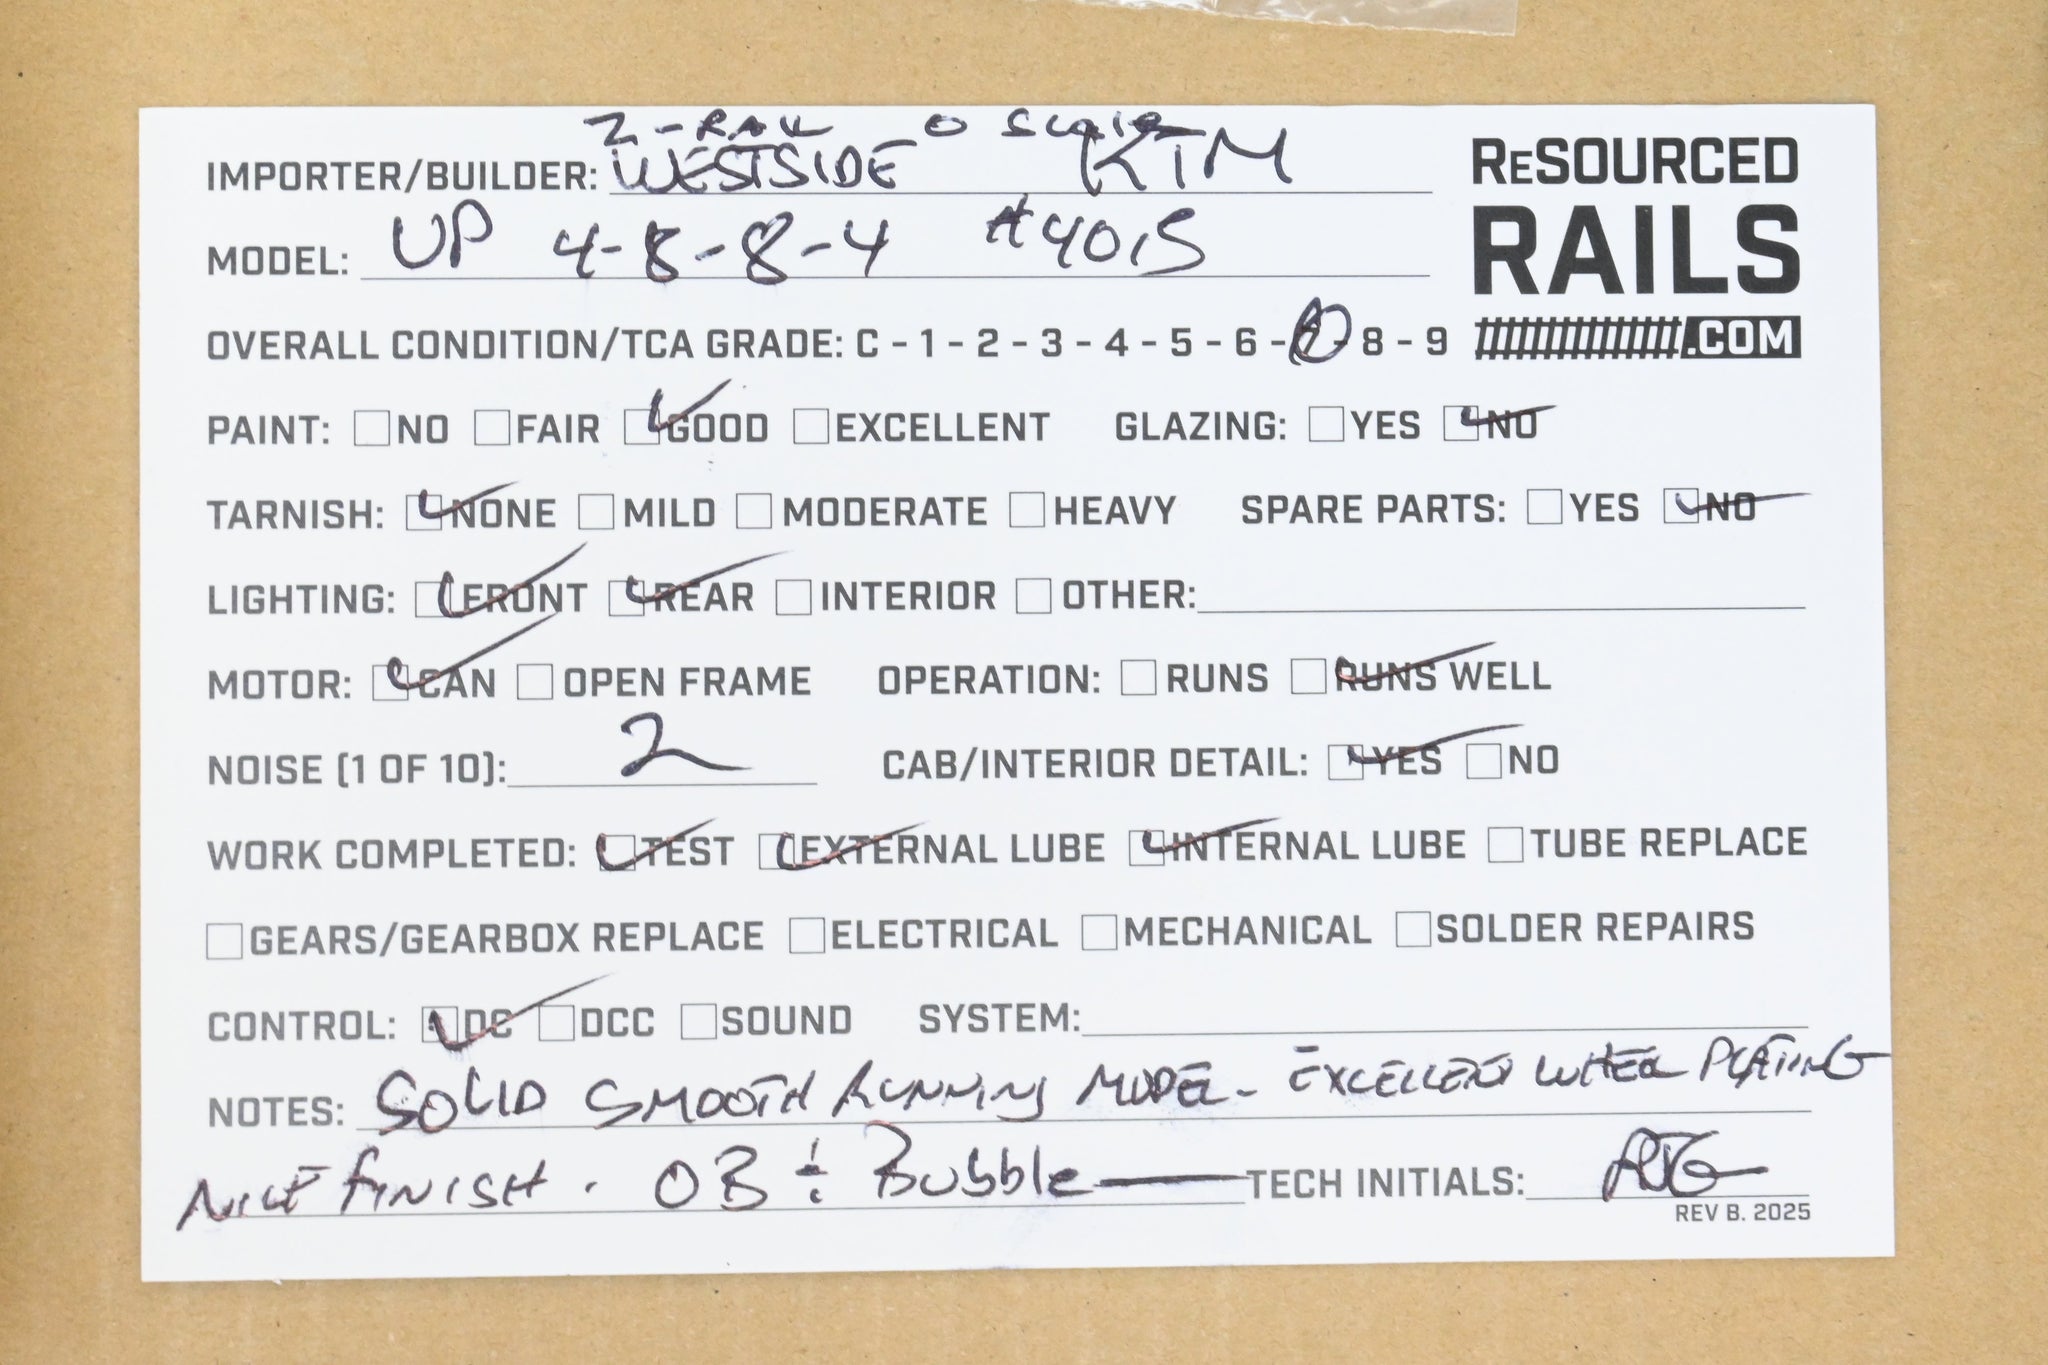 2-RAIL O SCALE
IMPORTER/BUILDER: WESTSIDE KTM
RESOURCED
RAILS
.COM
MODEL: UP 4-8-8-4 #4015
OVERALL CONDITION/TCA GRADE: C - 1 - 2 - 3 - 4 - 5 - 6 - 7 - 8 - 9
PAINT: NO FAIR GOOD EXCELLENT GLAZING: YES NO
TARNISH: NONE MILD MODERATE HEAVY SPARE PARTS: YES NO
LIGHTING: FRONT REAR INTERIOR OTHER:
MOTOR: CAN OPEN FRAME OPERATION: RUNS RUNS WELL
NOISE (1 OF 10): 2 CAB/INTERIOR DETAIL: YES NO
WORK COMPLETED: TEST EXTERNAL LUBE INTERNAL LUBE TUBE REPLACE
GEARS/GEARBOX REPLACE ELECTRICAL MECHANICAL SOLDER REPAIRS
CONTROL: DC DCC SOUND SYSTEM:
NOTES: SOLID SMOOTH RUNNING MODEL - EXCELLENT WHEEL PLATING
NICE FINISH. OB + Bubble TECH INITIALS:
REV B. 2025